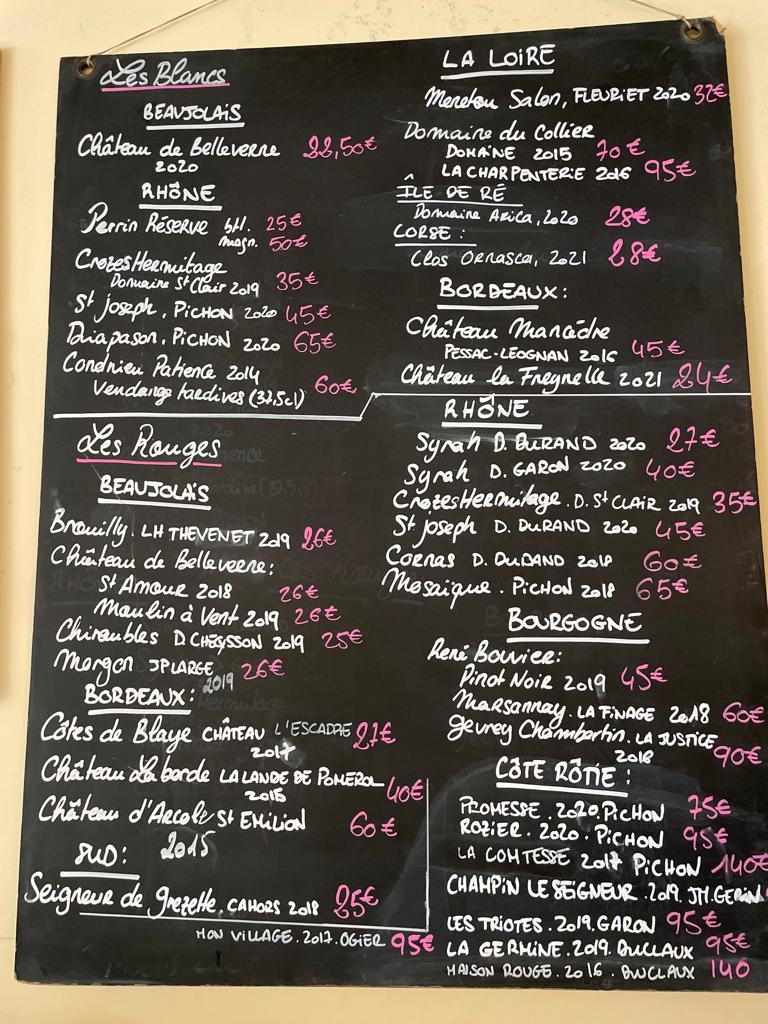 Les Blancs
BEAUJOLAIS
Château de Belleverne 22,50€
2020
RHÔNE
Perrin RÉSERVE btl. 25€
magn. 50€
Crozes Hermitage
Domaine St Clair 2019 35€
St Joseph, PICHON 2020 45€
Diapason, PICHON 2020 65€
Condrieu Patience 2014
Vendange tardives (37,5cl) 60€
LA LOIRE
Menetou Salon, FLEURIET 2020 32€
Domaine du Collier
DOMAINE 2015 70€
LA CHARPENTERIE 2016 95€
ÎLE DE RÉ
Domaine Arica, 2020 28€
CORSE :
Clos Ornasca, 2021 28€
BORDEAUX :
Château Mancèdre
PESSAC-LÉOGNAN 2016 45€
Château la Freynelle 2021 24€
Les Rouges
BEAUJOLAIS
Brouilly. LH THEVENET 2019 26€
Château de Belleverne :
St Amour 2018 26€
Moulin à Vent 2019 26€
Chiroubles D CHEYSSON 2019 25€
Morgon JP LARGE 26€
2019
BORDEAUX :
Côtes de Blaye CHÂTEAU L'ESCADRE 27€
2017
Château Laborde LALANDE DE POMEROL
2015 40€
Château d'Arcole St EMILION 60€
2015
SUD :
Seigneur de Grezette. CAHORS 2018 25€
RHÔNE
Syrah D. DURAND 2020 27€
Syrah D. GARON 2020 40€
Crozes Hermitage. D. St CLAIR 2019 35€
St Joseph D. DURAND 2020 45€
Cornas D. DURAND 2018 60€
Mosaïque. PICHON 2018 65€
BOURGOGNE
René Bouvier :
Pinot Noir 2019 45€
Marsannay. LA FINAGE 2018 60€
Gevrey Chambertin. LA JUSTICE
2018 90€
CÔTE RÔTIE :
PROMESSE. 2020. PICHON 75€
ROZIER. 2020. PICHON 95€
LA COMTESSE 2017 PICHON 140€
CHAMPIN LE SEIGNEUR. 2019. JM. GERIN
LES TRIOTES. 2019. GARON 95€
LA GERMINE. 2019. DUCLAUX 95€
MAISON ROUGE. 2016. DUCLAUX 140
MON VILLAGE. 2017. OGIER 95€